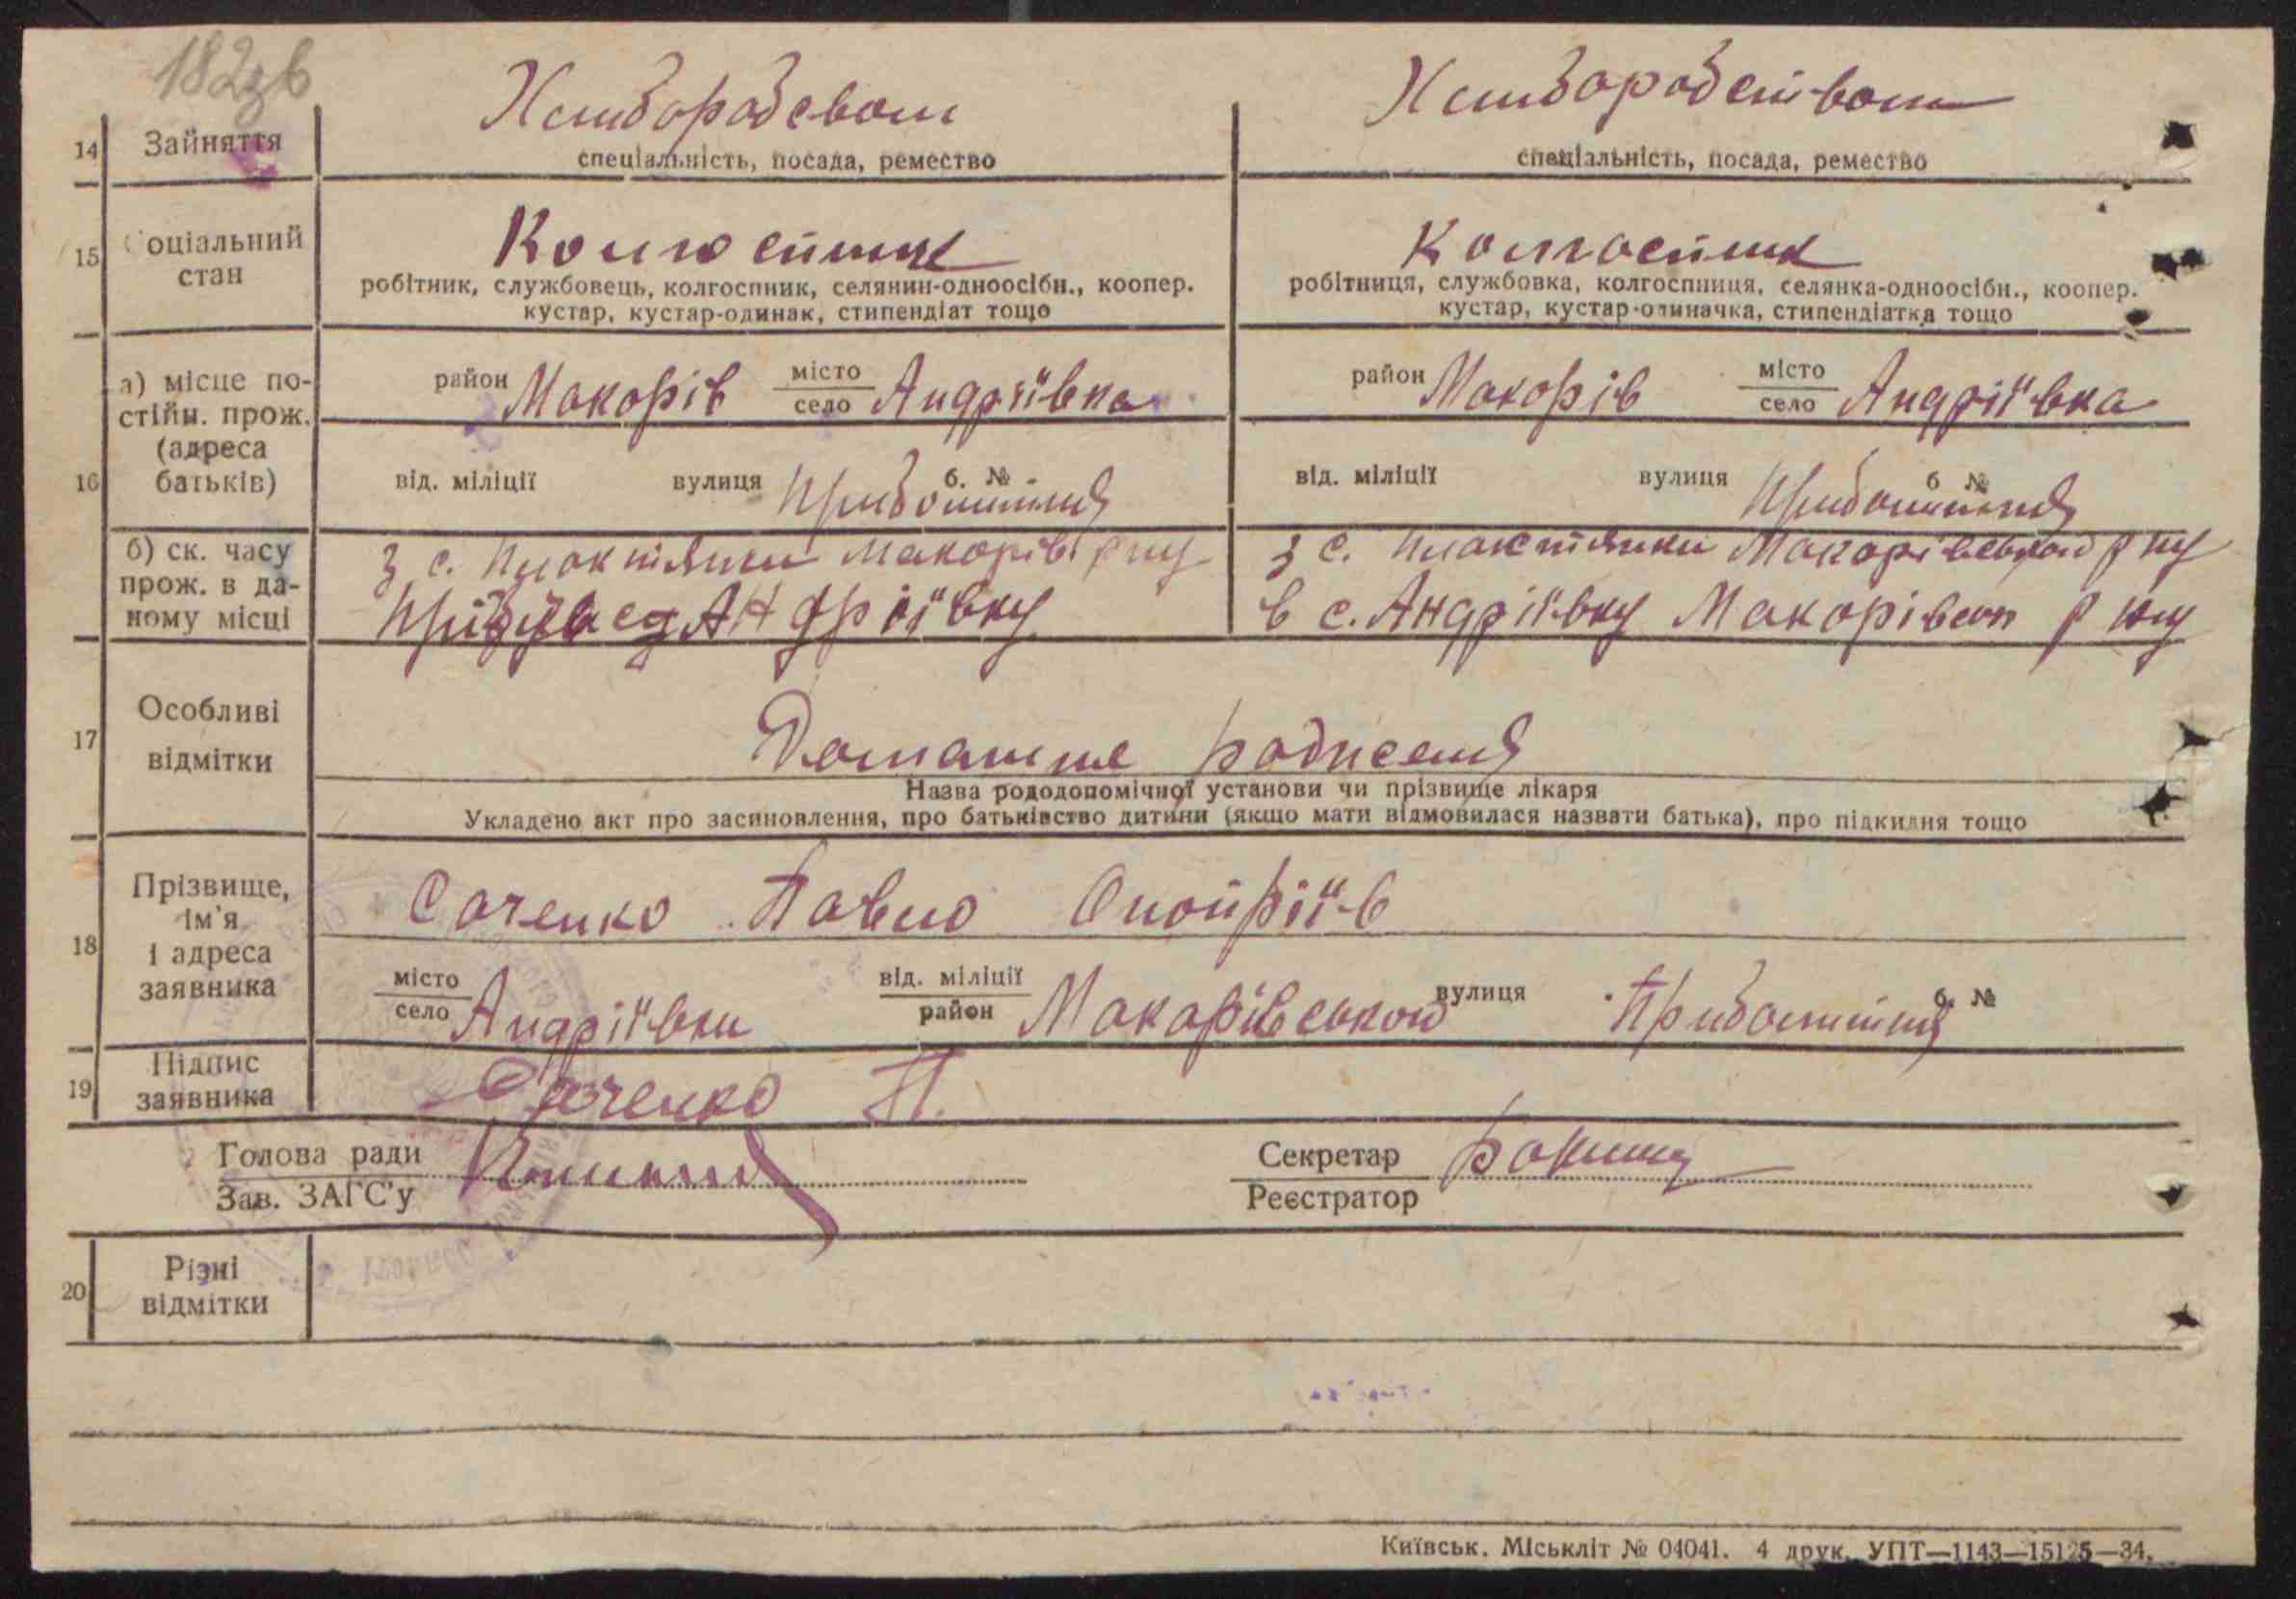 182зв
Хліборобсвом
Хліборобством
14 Зайняття
спеціальність, посада, ремество
спеціальність, посада, ремество
Колгоспник
Колгоспник
15 Соціальний стан
робітник, службовець, колгоспник, селянин-одноосібн., коопер.
кустар, кустар-одинак, стипендіат тощо
робітниця, службовка, колгоспниця, селянка-одноосібн., коопер.
кустар, кустар-одиначка, стипендіатка тощо
16
а) місце по-
стійн. прож.
(адреса
батьків)
район Макорів місто село Андріївка
район Макорів місто село Андріївка
від. міліції вулиця б. №
від. міліції вулиця б №
б) ск. часу
прож. в да-
ному місці
з с. Макорів.
Андріївку
з с. Макорівської р ну
в с. Андріївку Макорівсон р ну
17 Особливі
відмітки
Домашнє
Назва рододопомічної установи чи прізвище лікаря
Укладено акт про засиновлення, про батьківство дитини (якщо мати відмовилася назвати батька), про підкидня тощо
18
Прізвище,
ім'я
і адреса
заявника
Саченко Павло Онопріїв
місто село Андріївки від. міліції район Макарівською вулиця б. №
19 Підпис
заявника
Саченко П.
Голова ради
Зав. ЗАГС'у
Секретар
Реєстратор
20 Різні
відмітки
Київськ. Міськліт № 04041. 4 друк. УПТ—1143—15125—34.